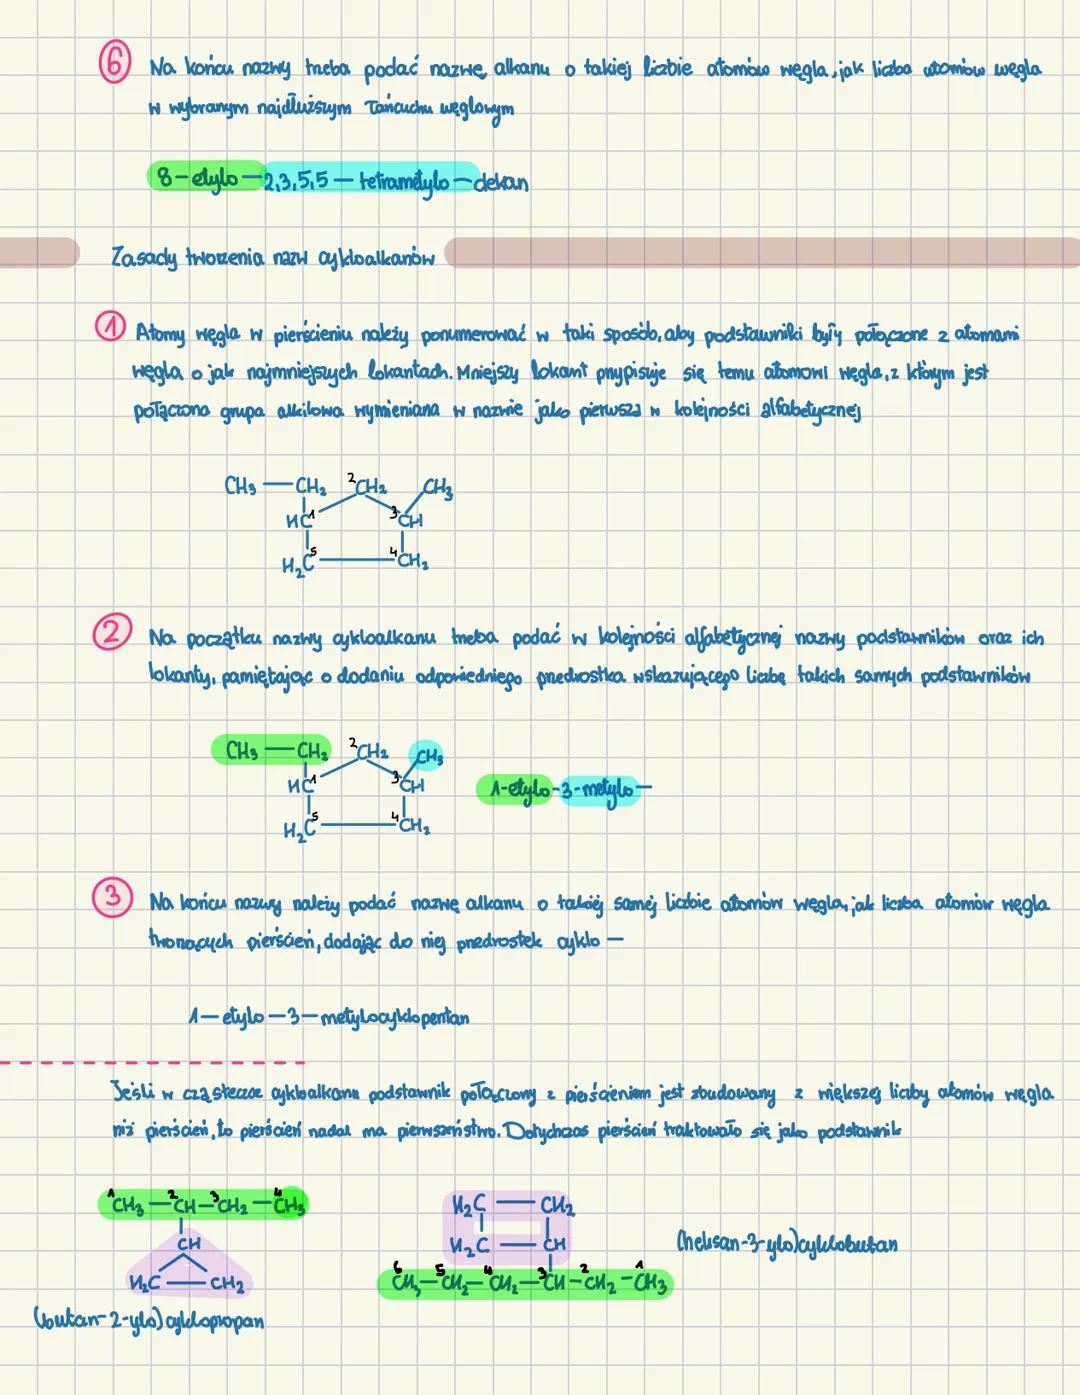 6 Na końcu nazwy trzeba podać nazwę alkanu o takiej liczbie atomów węgla, jak liczba atomów węgla
w wybranym najdłuższym łańcuchu węglowym
8-etylo-2,3,5,5-tetrametylo-dekan
Zasady tworzenia nazw cykloalkanów
1 Atomy węgla w pierścieniu należy ponumerować w taki sposób, aby podstawniki były połączone z atomami
węgla o jak najmniejszych lokantach. Mniejszy lokant przypisuje się temu atomowi węgla, z którym jest
połączona grupa alkilowa wymieniana w nazwie jako pierwsza w kolejności alfabetycznej
CH₃ — CH₂ ²CH₂ CH₃
HC¹ ³CH
H₂C⁵ ⁴CH₂
2 Na początku nazwy cykloalkanu trzeba podać w kolejności alfabetycznej nazwy podstawników oraz ich
lokanty, pamiętając o dodaniu odpowiedniego przedrostka wskazującego liczbę takich samych podstawników
CH₃ — CH₂ ²CH₂ CH₃
HC¹ ³CH 1-etylo-3-metylo-
H₂C⁵ ⁴CH₂
3 Na końcu nazwy należy podać nazwę alkanu o takiej samej liczbie atomów węgla, jak liczba atomów węgla
tworzących pierścień, dodając do niej przedrostek cyklo —
1-etylo-3-metylocyklopentan
Jeśli w cząsteczce cykloalkanu podstawnik połączony z pierścieniem jest zbudowany z większej liczby atomów węgla
niż pierścień, to pierścień nadal ma pierwszeństwo. Dotychczas pierścień traktowało się jako podstawnik
¹CH₃ — ²CH — ³CH₂ — ⁴CH₃
CH
H₂C — CH₂
(butan-2-ylo)cyklopropan
H₂C — CH₂
H₂C — CH
⁶CH₃ — ⁵CH₂ — ⁴CH₂ — ³CH — ²CH₂ — ¹CH₃
(heksan-3-ylo)cyklobutan